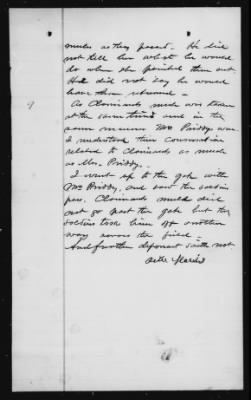 mules as they passed. He did
not tell her what he would
do when she pointed them out
He did not say he would
have them returned -
9
As Claimants mule was taken
at the same time and in the
same manner Mrs Priddy was
I understood this conversation
related to Claimants as much
as Mrs. Priddy. -
I went up to the gate with
Mrs Priddy, and saw the soldiers
pass. Claimants mule did
not go past the gate but the
soldiers took him off another
way across the field -
And further deponent saith not